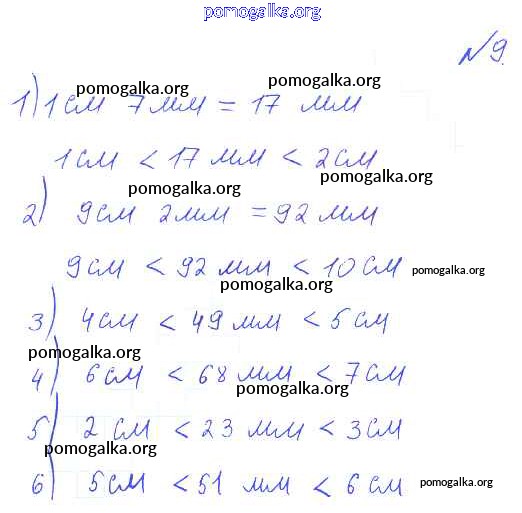 pomogalka.org
№9.
pomogalka.org pomogalka.org
1) 1 см 7 мм = 17 мм
1 см < 17 мм < 2 см
pomogalka.org pomogalka.org
2) 9 см 2 мм = 92 мм
9 см < 92 мм < 10 см pomogalka.org
pomogalka.org
3) 4 см < 49 мм < 5 см
pomogalka.org
4) 6 см < 68 мм < 7 см
pomogalka.org
5) 2 см < 23 мм < 3 см
pomogalka.org
6) 5 см < 51 мм < 6 см pomogalka.org